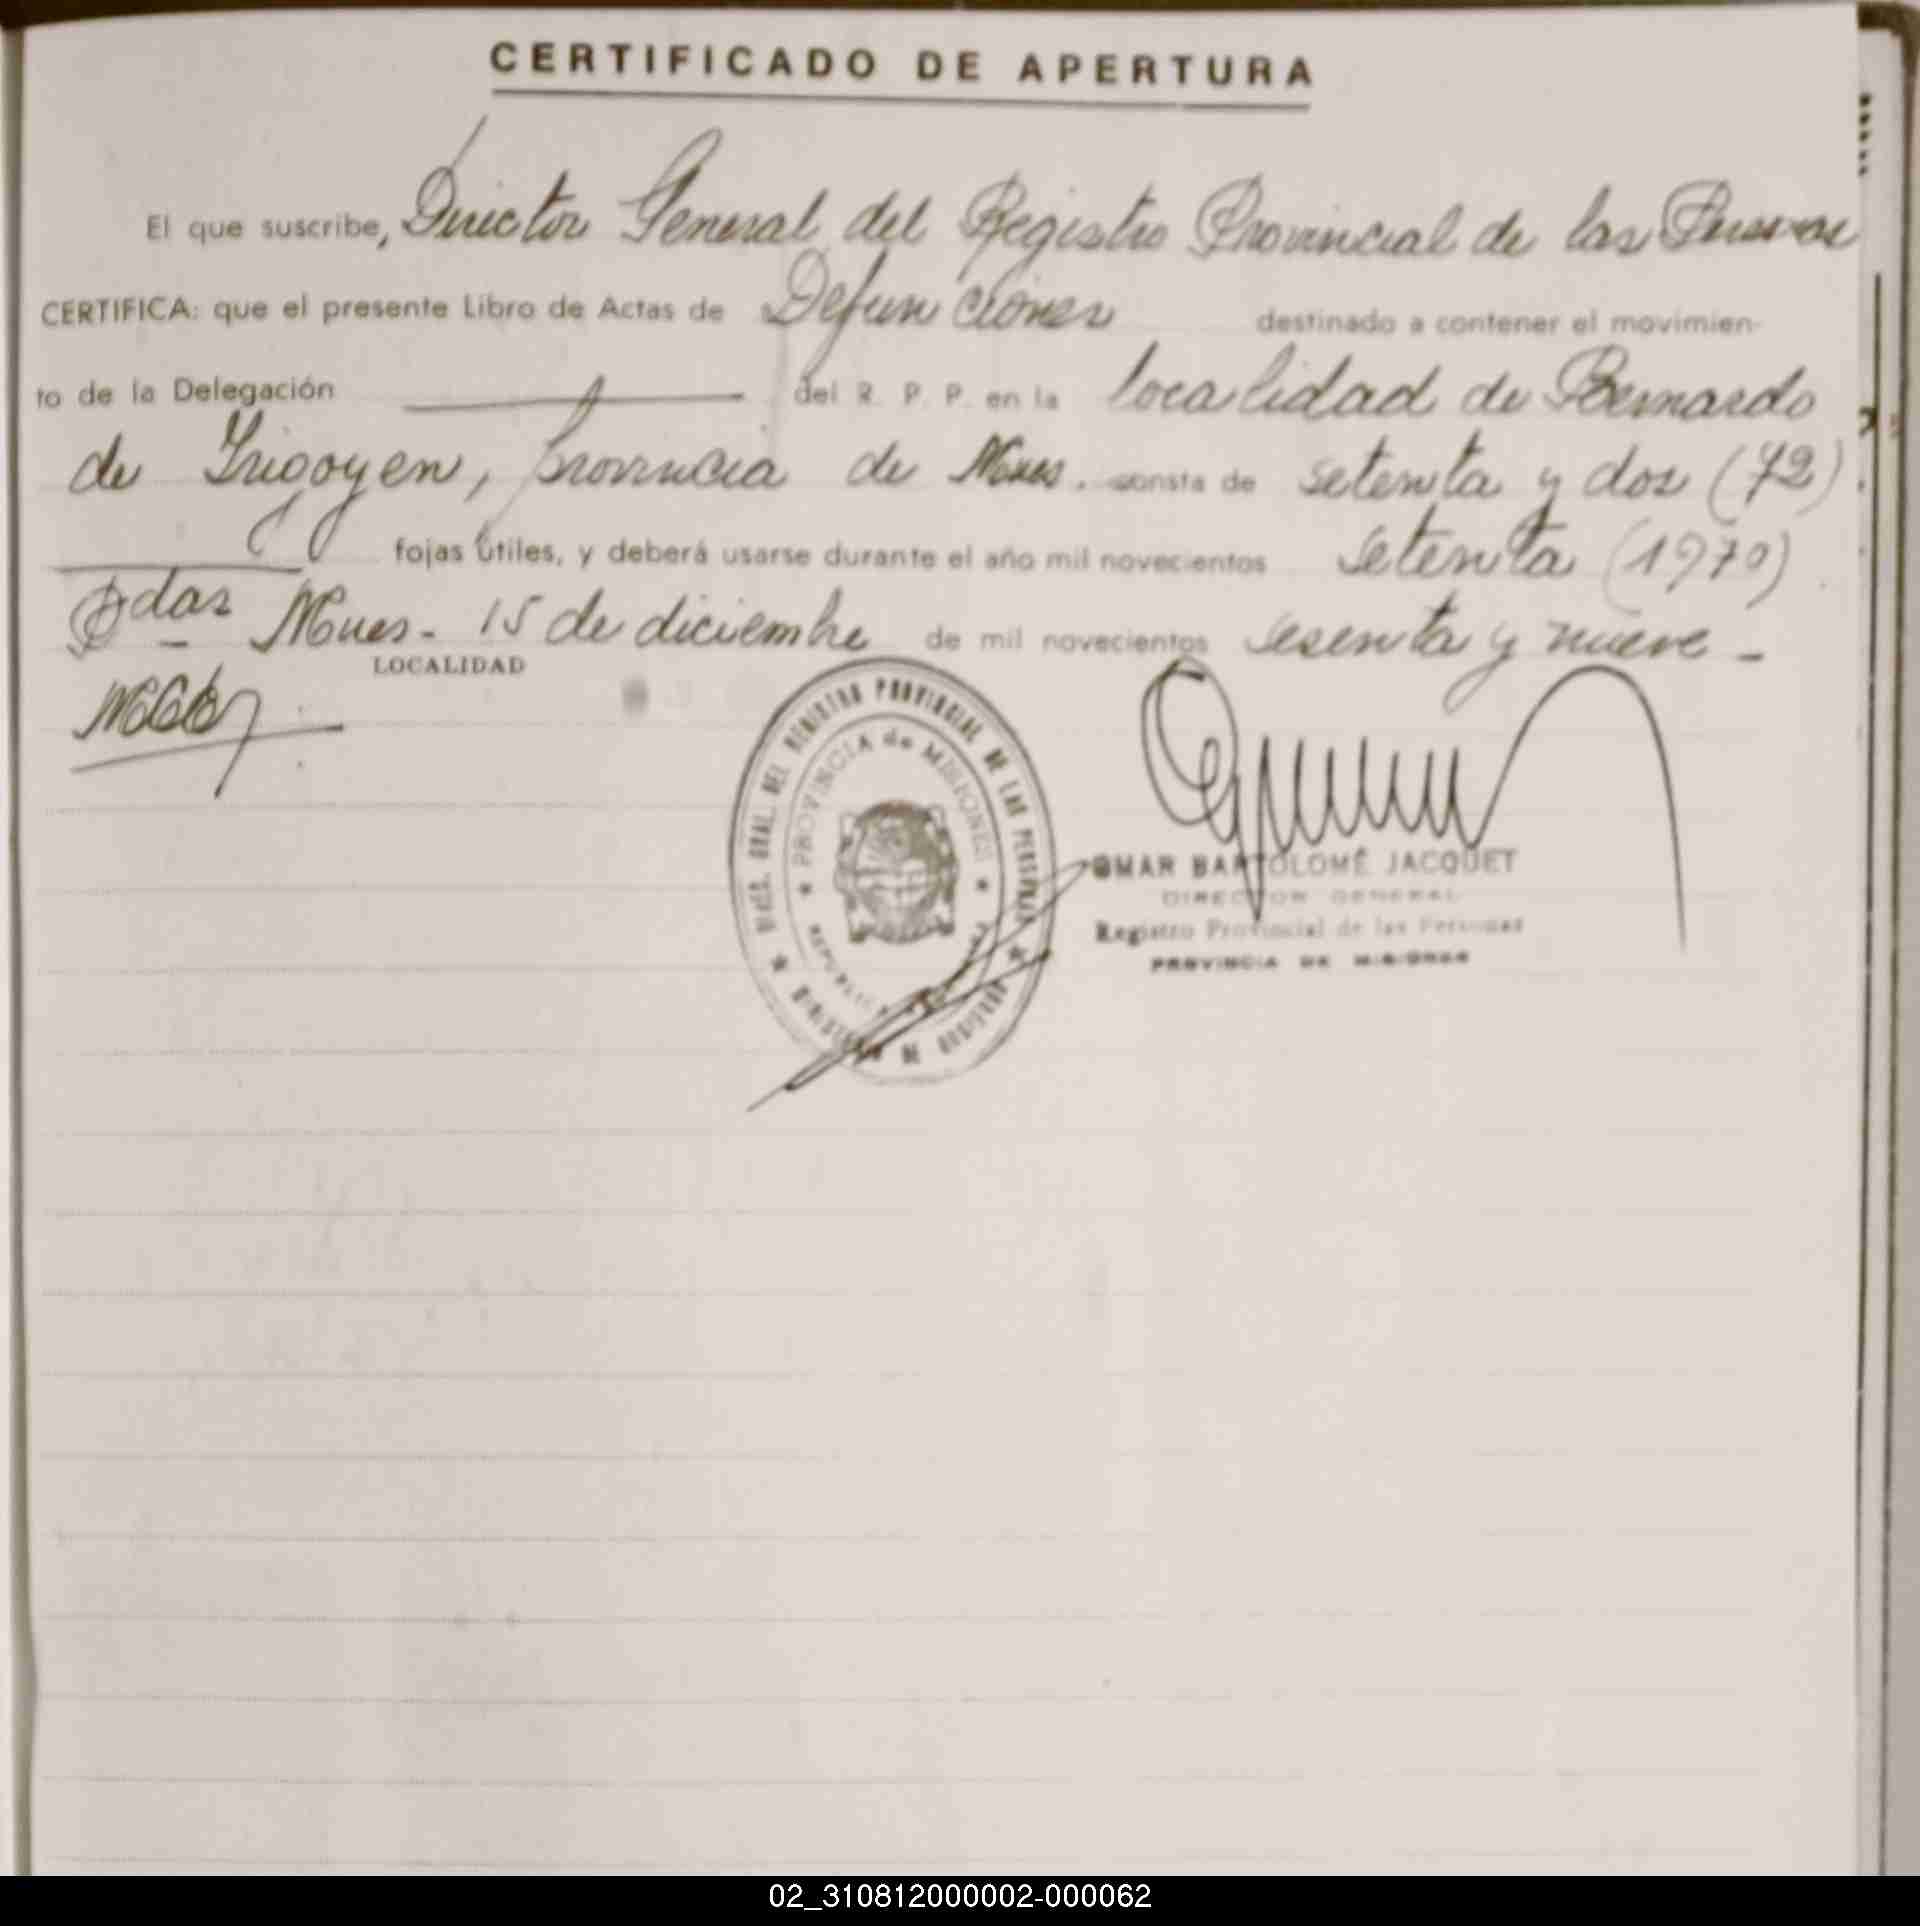 CERTIFICADO DE APERTURA
El que suscribe, Director General del Registro Provincial de las Personas
CERTIFICA: que el presente Libro de Actas de Defunciones destinado a contener el movimien-
to de la Delegación del R. P. P. en la localidad de Bernardo
de Irigoyen, provincia de Mnes. consta de setenta y dos (72)
fojas útiles, y deberá usarse durante el año mil novecientos setenta (1970)
Pdas Mnes. 15 de diciembre de mil novecientos sesenta y nueve -
LOCALIDAD
DIREC. GRAL. DEL REGISTRO PROVINCIAL DE LAS PERSONAS
PROVINCIA de MISIONES
REPUBLICA
MINISTERIO DE GOBIERNO
OMAR BARTOLOMÉ JACQUET
DIRECTOR GENERAL
Registro Provincial de las Personas
PROVINCIA DE MISIONES
02_310812000002-000062